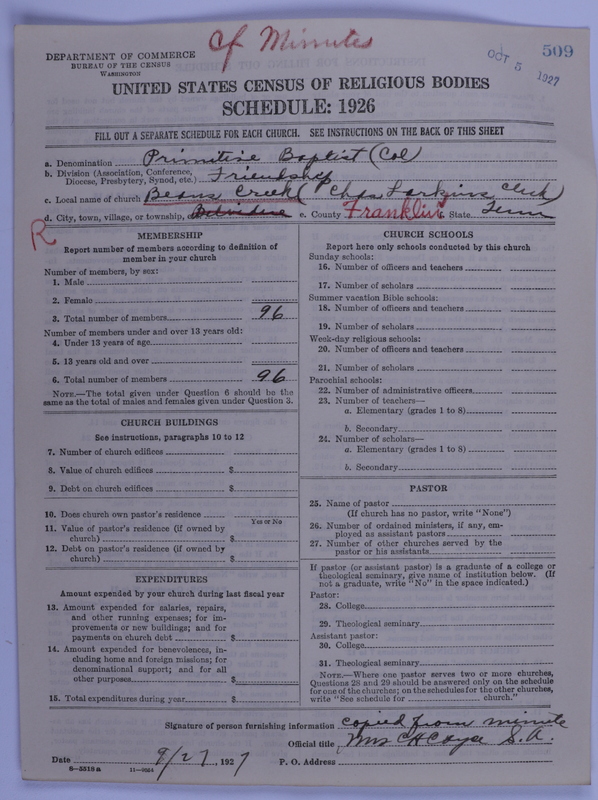 Cf Minutes
OCT 5 1927
509
DEPARTMENT OF COMMERCE
BUREAU OF THE CENSUS
WASHINGTON
UNITED STATES CENSUS OF RELIGIOUS BODIES
SCHEDULE: 1926
FILL OUT A SEPARATE SCHEDULE FOR EACH CHURCH. SEE INSTRUCTIONS ON THE BACK OF THIS SHEET
a. Denomination Primitive Baptist (Col)
b. Division (Association, Conference, Diocese, Presbytery, Synod, etc.) Friendship
c. Local name of church Beans Creek (Chas Larkins Clerk)
d. City, town, village, or township, Belvidere e. County Franklin f. State Tenn
R
MEMBERSHIP
Report number of members according to definition of
member in your church
Number of members, by sex:
1. Male
2. Female
3. Total number of members 96
Number of members under and over 13 years old:
4. Under 13 years of age
5. 13 years old and over
6. Total number of members 96
NOTE.—The total given under Question 6 should be the
same as the total of males and females given under Question 3.
CHURCH BUILDINGS
See instructions, paragraphs 10 to 12
7. Number of church edifices
8. Value of church edifices $
9. Debt on church edifices $
10. Does church own pastor's residence
Yes or No
11. Value of pastor's residence (if owned by
church) $
12. Debt on pastor's residence (if owned by
church) $
EXPENDITURES
Amount expended by your church during last fiscal year
13. Amount expended for salaries, repairs,
and other running expenses; for im-
provements or new buildings; and for
payments on church debt $
14. Amount expended for benevolences, in-
cluding home and foreign missions; for
denominational support; and for all
other purposes $
15. Total expenditures during year $
CHURCH SCHOOLS
Report here only schools conducted by this church
Sunday schools:
16. Number of officers and teachers
17. Number of scholars
Summer vacation Bible schools:
18. Number of officers and teachers
19. Number of scholars
Week-day religious schools:
20. Number of officers and teachers
21. Number of scholars
Parochial schools:
22. Number of administrative officers
23. Number of teachers—
a. Elementary (grades 1 to 8)
b. Secondary
24. Number of scholars—
a. Elementary (grades 1 to 8)
b. Secondary
PASTOR
25. Name of pastor
(If church has no pastor, write "None")
26. Number of ordained ministers, if any, em-
ployed as assistant pastors
27. Number of other churches served by the
pastor or his assistants
If pastor (or assistant pastor) is a graduate of a college or
theological seminary, give name of institution below. (If
not a graduate, write "No" in the space indicated.)
Pastor:
28. College
29. Theological seminary
Assistant pastor:
30. College
31. Theological seminary
NOTE.—Where one pastor serves two or more churches,
Questions 28 and 29 should be answered only on the schedule
for one of the churches; on the schedules for the other churches,
write "See schedule for church."
Signature of person furnishing information copied from minute
Official title Mrs C H S. A.
Date 9/27, 1927 P. O. Address
8—5518a 11—9054